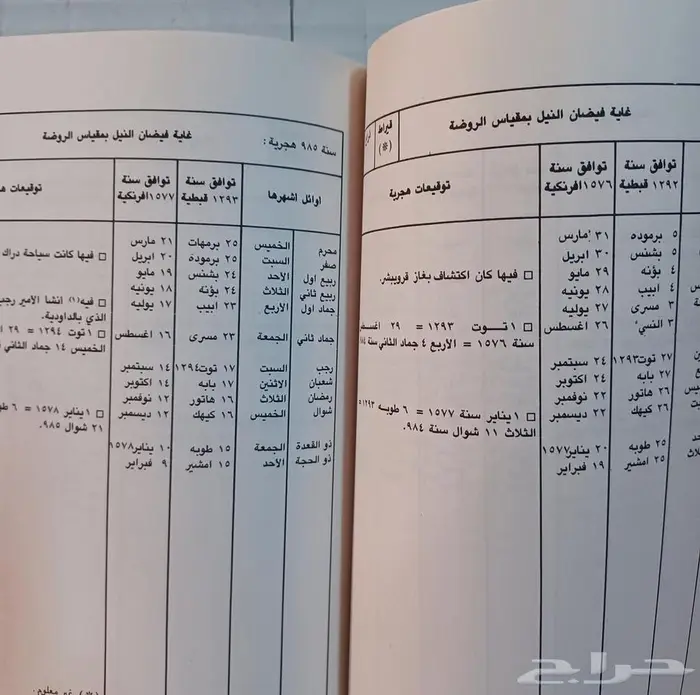 غاية فيضان النيل بمقياس الروضة
قيراط
(*)
توافق سنة
١٢٩٢ قبطية
توافق سنة
١٥٧٦ افرنكية
توقيعات هجرية
٥ برموده
٣١ مارس
٥ بشنس
٣٠ ابريل
٤ بؤنه
٢٩ مايو
□ فيها كان اكتشاف بغاز فروبيشر.
٤ ابيب
٢٨ يونيه
٣ مسرى
٢٧ يوليه
٣ النسئ
٢٦ اغسطس
□ ١ توت ١٢٩٣ = ٢٩ اغسطس
سنة ١٥٧٦ = الاربع ٤ جماد الثاني سنة
٢٧ توت ١٢٩٣
٢٤ سبتمبر
٢٧ بابه
٢٤ اكتوبر
٢٦ هاتور
٢٢ نوفمبر
٢٦ كيهك
٢٢ ديسمبر
□ ١ يناير سنة ١٥٧٧ = ٦ طوبه ١٢٩٣
الثلاث ١١ شوال سنة ٩٨٤.
٢٥ طوبه
٢٠ يناير ١٥٧٧
٢٥ امشير
١٩ فبراير
سنة ٩٨٥ هجرية :
غاية فيضان النيل بمقياس الروضة
اوائل اشهرها
توافق سنة
١٢٩٣ قبطية
توافق سنة
١٥٧٧ افرنكية
توقيعات
محرم الخميس ٢٥ برمهات ٢١ مارس
صفر السبت ٢٥ برمودة ٢٠ ابريل
□ فيها كانت سياحة دراك
ربيع اول الاحد ٢٤ بشنس ١٩ مايو
ربيع ثاني الثلاث ٢٤ بؤنه ١٨ يونيه
جماد اول الاربع ٢٣ ابيب ١٧ يوليه
□ فيه(١) انشا الأمير رجب
الذي بالداودية.
جماد ثاني الجمعة ٢٣ مسرى ١٦ اغسطس
□ ١ توت ١٢٩٤ = ٢٩
الخميس ١٤ جماد الثاني
رجب السبت ١٧ توت ١٢٩٤ ١٤ سبتمبر
شعبان الاثنين ١٧ بابه ١٤ اكتوبر
رمضان الثلاث ١٦ هاتور ١٢ نوفمبر
شوال الخميس ١٦ كيهك ١٢ ديسمبر
□ ١ يناير ١٥٧٨ = ٦
٢١ شوال ٩٨٥.
ذو القعدة الجمعة ١٥ طوبه ١٠ يناير ١٥٧٨
ذو الحجة الاحد ١٥ امشير ٩ فبراير
(*) غير معلوم.
حراج